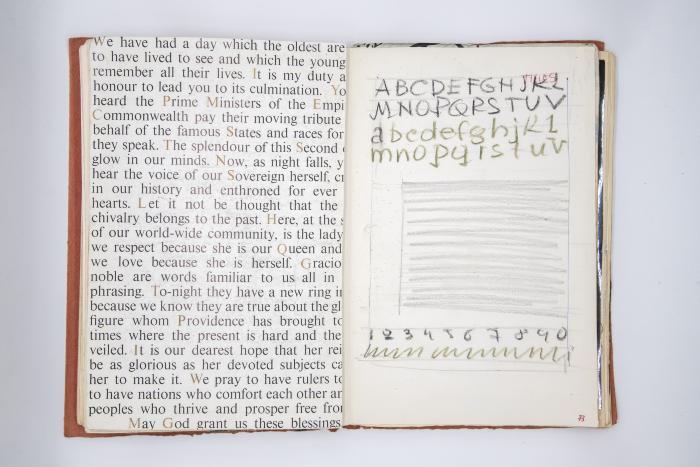 We have had a day which the oldest are
to have lived to see and which the young
remember all their lives. It is my duty a
honour to lead you to its culmination. Yo
heard the Prime Ministers of the Empi
Commonwealth pay their moving tribute
behalf of the famous States and races for
they speak. The splendour of this Second
glow in our minds. Now, as night falls, y
hear the voice of our Sovereign herself, cr
in our history and enthroned for ever
hearts. Let it not be thought that the
chivalry belongs to the past. Here, at the s
of our world-wide community, is the lady
we respect because she is our Queen and
we love because she is herself. Gracio
noble are words familiar to us all in
phrasing. To-night they have a new ring in
because we know they are true about the gl
figure whom Providence has brought to
times where the present is hard and the
veiled. It is our dearest hope that her rei
be as glorious as her devoted subjects ca
her to make it. We pray to have rulers to
to have nations who comfort each other an
peoples who thrive and prosper free fro
May God grant us these blessings
ABCDEFGHJKL
MNOPQRSTUV
abcdefghjkl
mnopqrstuv
1234567890